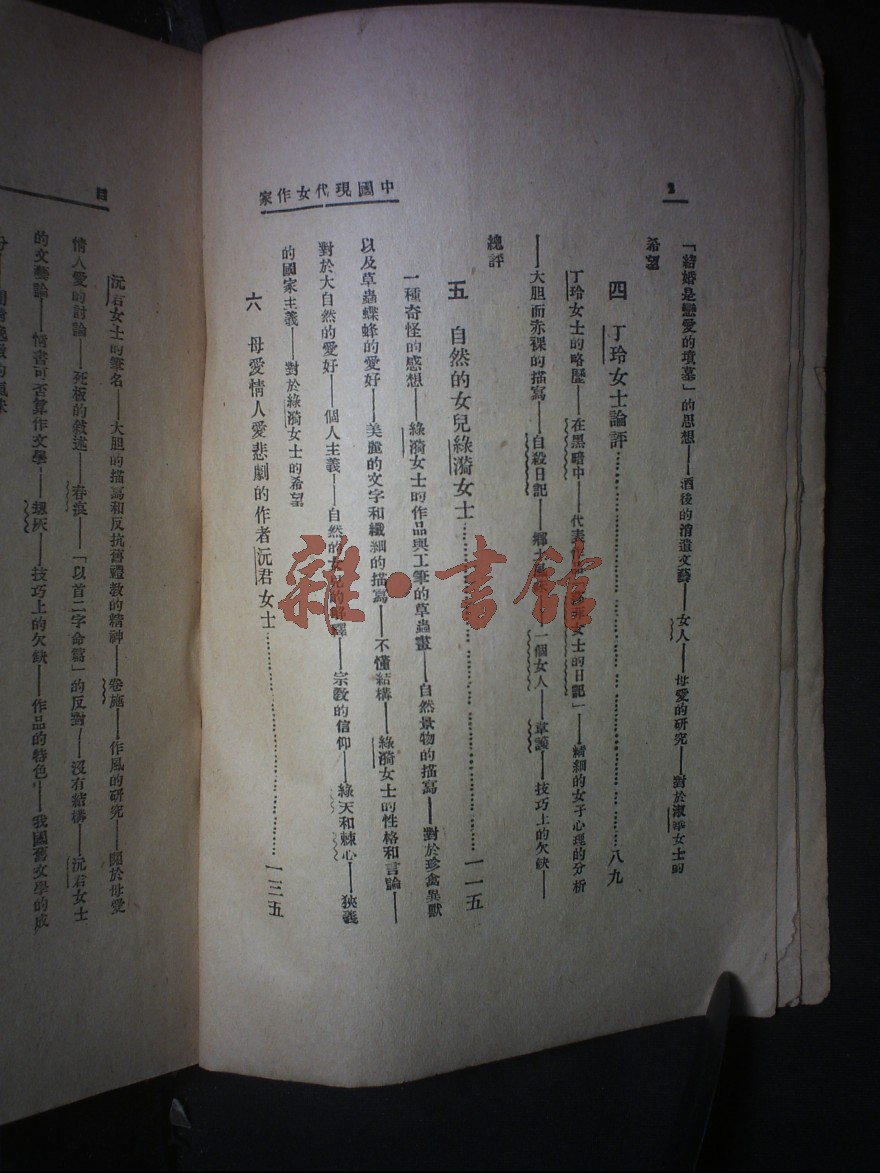 2
中國現代女作家
「結婚是戀愛的墳墓」的思想——酒後的消遣文藝——女人——母愛的研究——對於淑華女士的
希望
四 丁玲女士論評……八九
丁玲女士的略歷——在黑暗中——代表作 女士的日記」——精細的女子心理的分析
——大胆而赤裸的描寫——自殺日記——鄉土風味——一個女人——韋護——技巧上的欠缺——
總評
五 自然的女兒綠漪女士……一一五
一種奇怪的感想——綠漪女士的作品與工筆的草蟲畫——自然景物的描寫——對於珍禽異獸
以及草蟲蝶蜂的愛好——美麗的文字和纖細的描寫——不懂結構——綠漪女士的性格和言論——
對於大自然的愛好——個人主義——自然的女兒的解釋——宗教的信仰——綠天和棘心——狹義
的國家主義——對於綠漪女士的希望
六 母愛情人愛悲劇的作者沅君女士……一三五
目
沅君女士的筆名——大胆的描寫和反抗舊禮教的精神——卷葹——作風的研究——關於母愛
情人愛的討論——死板的敘述——春痕——「以首二字命篇」的反對——沒有結構——沅君女士
的文藝論——情書可否算作文學——劫灰——技巧上的欠缺——作品的特色——我國舊文學的成
雜·書館